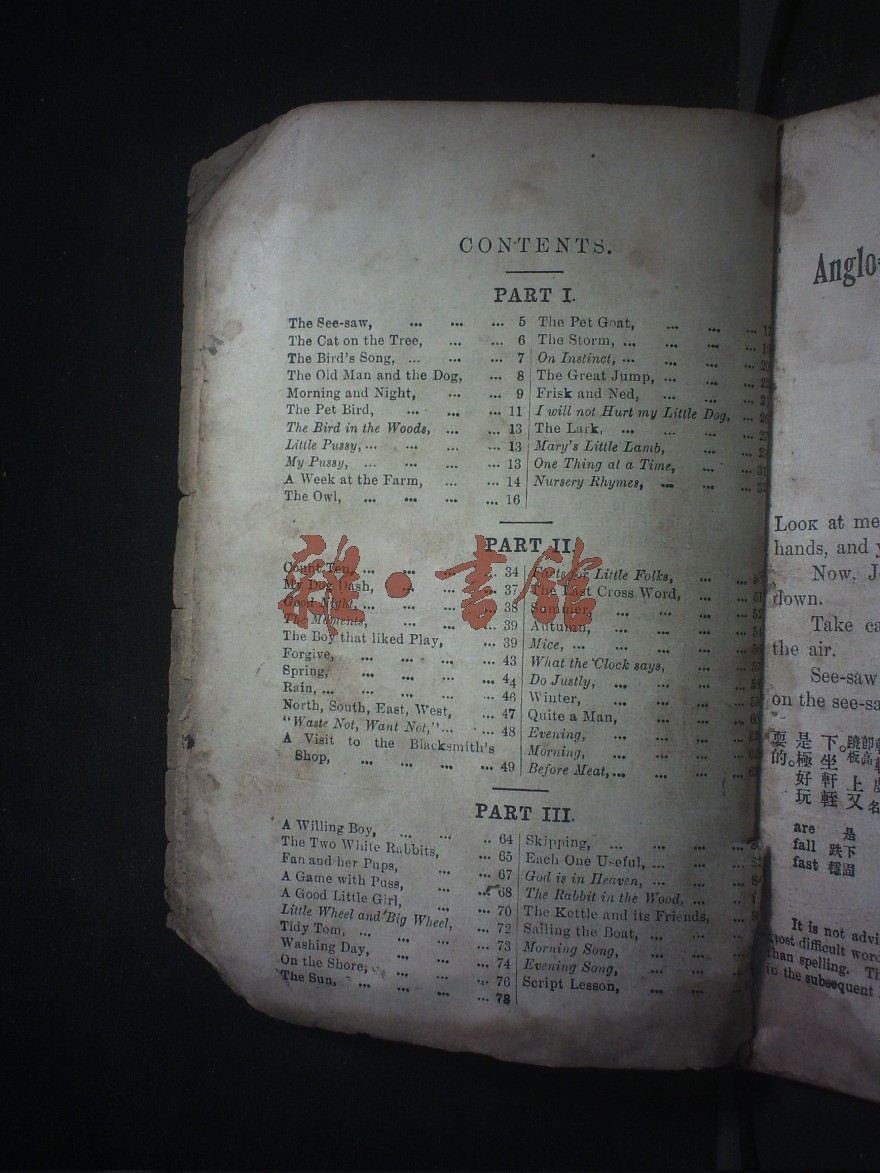 CONTENTS.
PART I.
The See-saw, ... ... ... 5
The Cat on the Tree, ... ... 6
The Bird's Song, ... ... ... 7
The Old Man and the Dog, ... 8
Morning and Night, ... ... 9
The Pet Bird, ... ... ... 11
The Bird in the Woods, ... ... 13
Little Pussy, ... ... ... ... 13
My Pussy, ... ... ... ... 13
A Week at the Farm, ... ... 14
The Owl, ... ... ... ... 16
The Pet Goat, ... ... ...
The Storm, ... ... ... ...
On Instinct, ... ... ...
The Great Jump, ... ... ...
Frisk and Ned, ... ... ...
I will not Hurt my Little Dog, ...
The Lark, ... ... ... ...
Mary's Little Lamb, ... ...
One Thing at a Time, ... ...
Nursery Rhymes, ... ... ...
PART II.
Count Ten, ... ... ... 34
My Dog Dash, ... ... ... 37
Good Night, ... ... ... ... 38
The Moments, ... ... ... 39
The Boy that liked Play, ... 39
Forgive, ... ... ... ... 43
Spring, ... ... ... ... 44
Rain, ... ... ... ... ... 46
North, South, East, West, ... 47
"Waste Not, Want Not," ... ... 48
A Visit to the Blacksmith's
Shop, ... ... ... ... 49
Facts for Little Folks, ... ...
The Last Cross Word, ... ...
Summer, ... ... ... ...
Autumn, ... ... ... ...
Mice, ... ... ... ... ...
What the Clock says, ... ...
Do Justly, ... ... ... ...
Winter, ... ... ... ...
Quite a Man, ... ... ...
Evening, ... ... ... ...
Morning, ... ... ... ...
Before Meat, ... ... ... ...
PART III.
A Willing Boy, ... ... ... 64
The Two White Rabbits, ... 65
Fan and her Pups, ... ... 67
A Game with Puss, ... ... 68
A Good Little Girl, ... ... 70
Little Wheel and Big Wheel, ... 72
Tidy Tom, ... ... ... ... 73
Washing Day, ... ... ... 74
On the Shore, ... ... ... 76
The Sun, ... ... ... ... 78
Skipping, ... ... ... ...
Each One Useful, ... ... ...
God is in Heaven, ... ... ...
The Rabbit in the Wood, ... ...
The Kettle and its Friends, ...
Sailing the Boat, ... ... ...
Morning Song, ... ... ...
Evening Song, ... ... ...
Script Lesson, ... ... ...
雜·書館
Anglo-
LOOK at me
hands, and
Now, J
down.
Take ca
the air.
See-saw
on the see-sa
下坐軒輊
是極好玩
耍的。
are 是
fall 跌下
fast 穩固
It is not advi
most difficult word
than spelling. Th
in the subsequent